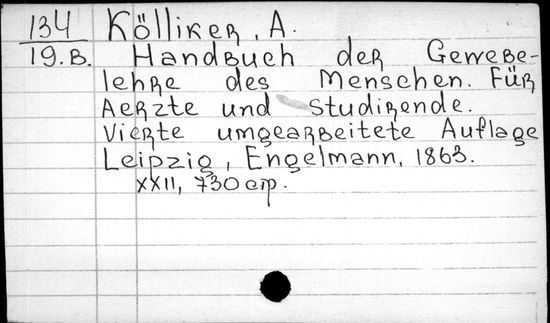 134 Kölliker, A.
19.B. Handbuch der Gewebe-
lehre des Menschen. Für
Aerzte und Studirende.
Vierte umgearbeitete Auflage
Leipzig, Engelmann, 1863.
XXII, 730 стр.